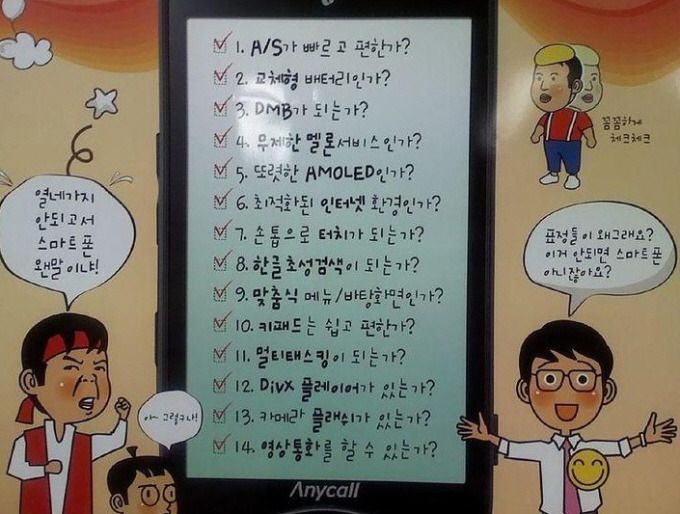 ☑ 1. A/S가 빠르고 편한가?
☑ 2. 교체형 배터리인가?
☑ 3. DMB가 되는가?
☑ 4. 무제한 멜론서비스인가?
☑ 5. 또렷한 AMOLED인가?
☑ 6. 최적화된 인터넷 환경인가?
☑ 7. 손톱으로 터치가 되는가?
☑ 8. 한글초성검색이 되는가?
☑ 9. 맞춤식 메뉴/바탕화면인가?
☑ 10. 키패드는 쉽고 편한가?
☑ 11. 멀티태스킹이 되는가?
☑ 12. DivX 플레이어가 있는가?
☑ 13. 카메라 플래쉬가 있는가?
☑ 14. 영상통화를 할 수 있는가?
Anycall
꼼꼼하게
체크체크
열네가지
안되고서
스마트폰
왠말이냐!
표정들이 왜그래요?
이거 안되면 스마트폰
아니잖아요?
아~ 그렇구나!